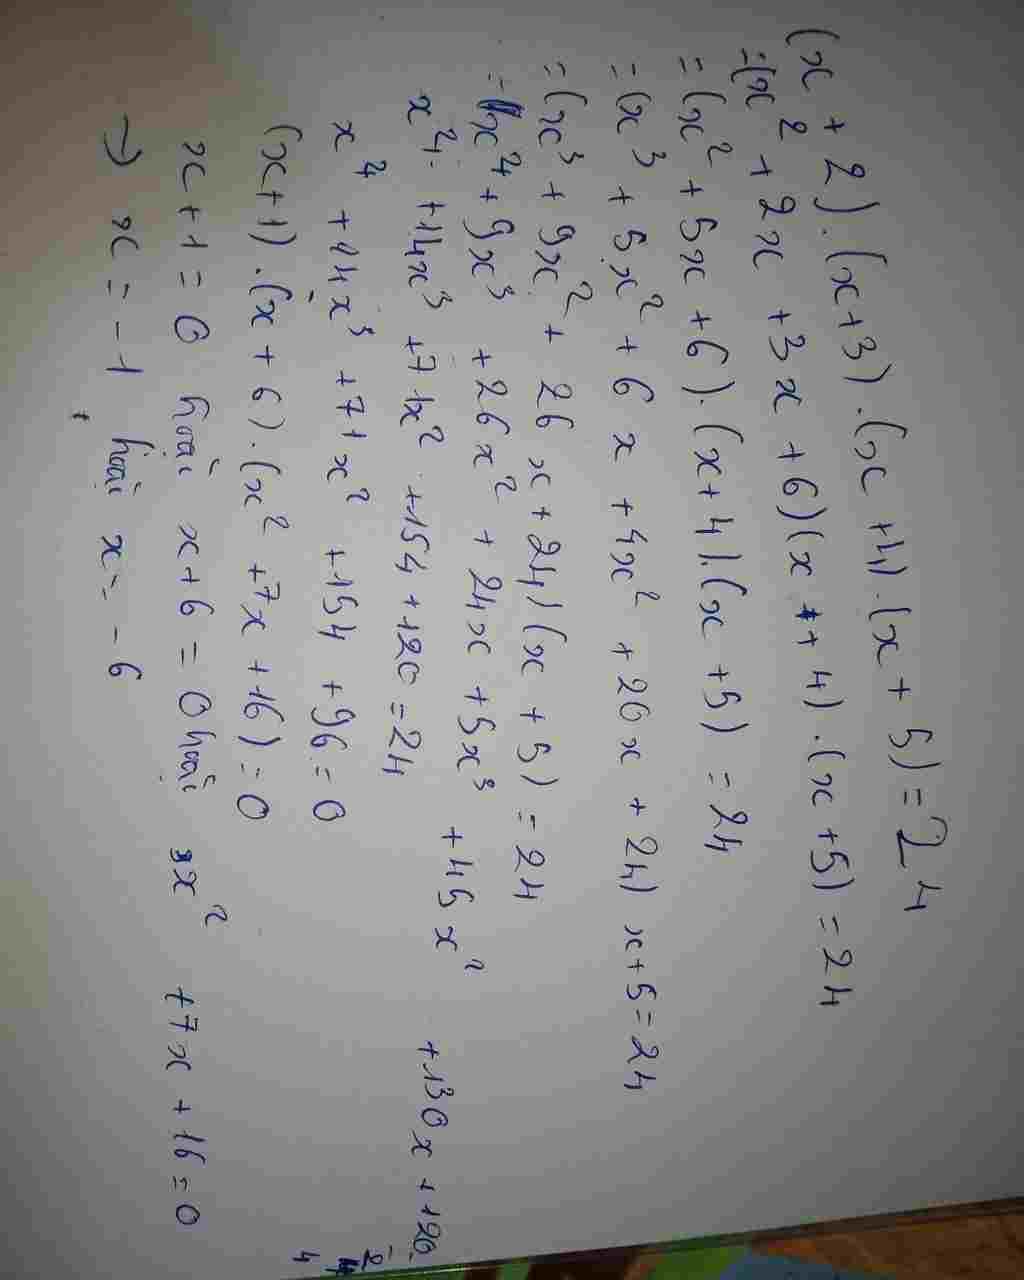 (x + 2).(x+3).(x +4).(x + 5) = 24
=(x² + 2x +3x +6)(x + 4).(x +5) = 24
= (x² + 5x +6).(x+4).(x +5) = 24
= (x³ + 5x² + 6x +4x² + 20x + 24) x+5=24
= (x³ + 9x² + 26x + 24)(x + 5) = 24
= x⁴ + 9x³ + 26x² + 24x + 5x³ + 45x² +130x +120 = 24
x⁴ +14x³ +71x² +154 +120 = 24
x⁴ +14x³ +71x² +154 +96 = 0
(x+1).(x+6).(x² +7x +16) = 0
x+1=0 hoặc x+6=0 hoặc x² +7x +16=0
→ x = -1 hoặc x = -6